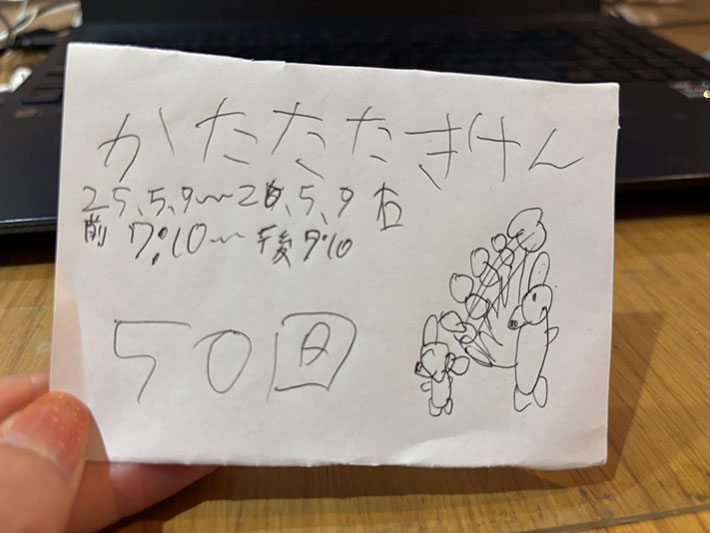 かたたたきけん
25、5、9〜26、5、9
前 7:10〜午後 7:10
50回